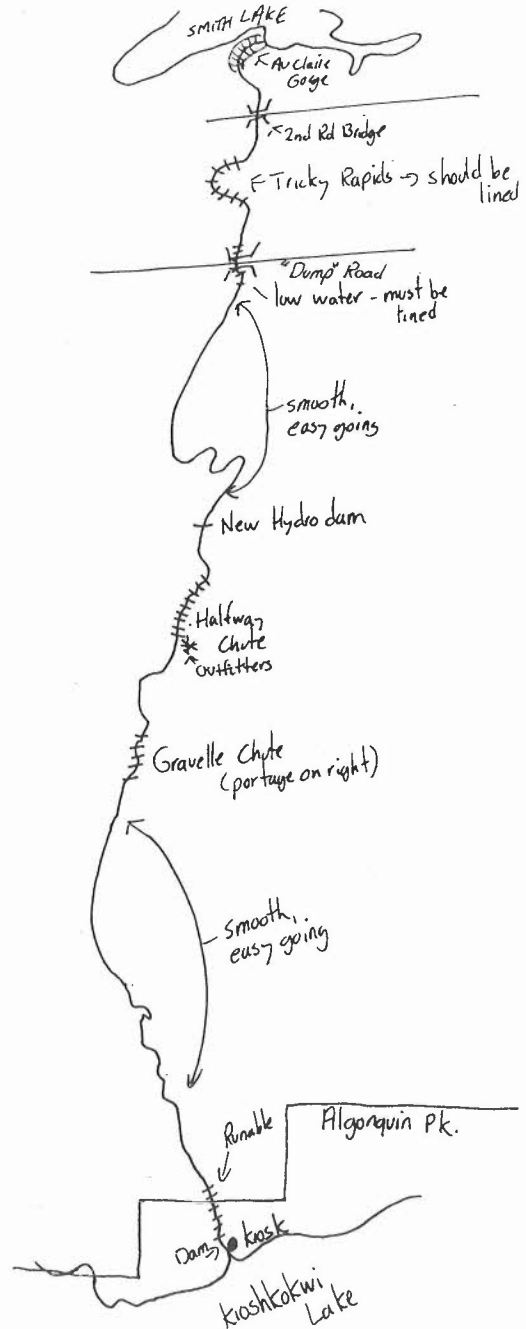 SMITH LAKE
Au Claire
Gorge
2nd Rd Bridge
Tricky Rapids → should be
lined
"Dump" Road
low water - must be
lined
smooth,
easy going
New Hydro dam
Halfway
Chute
Outfitters
Gravelle Chute
(portage on right)
smooth,
easy going
Runable
Algonquin Pk.
Kiosk
Dam
Kioshkokwi
Lake